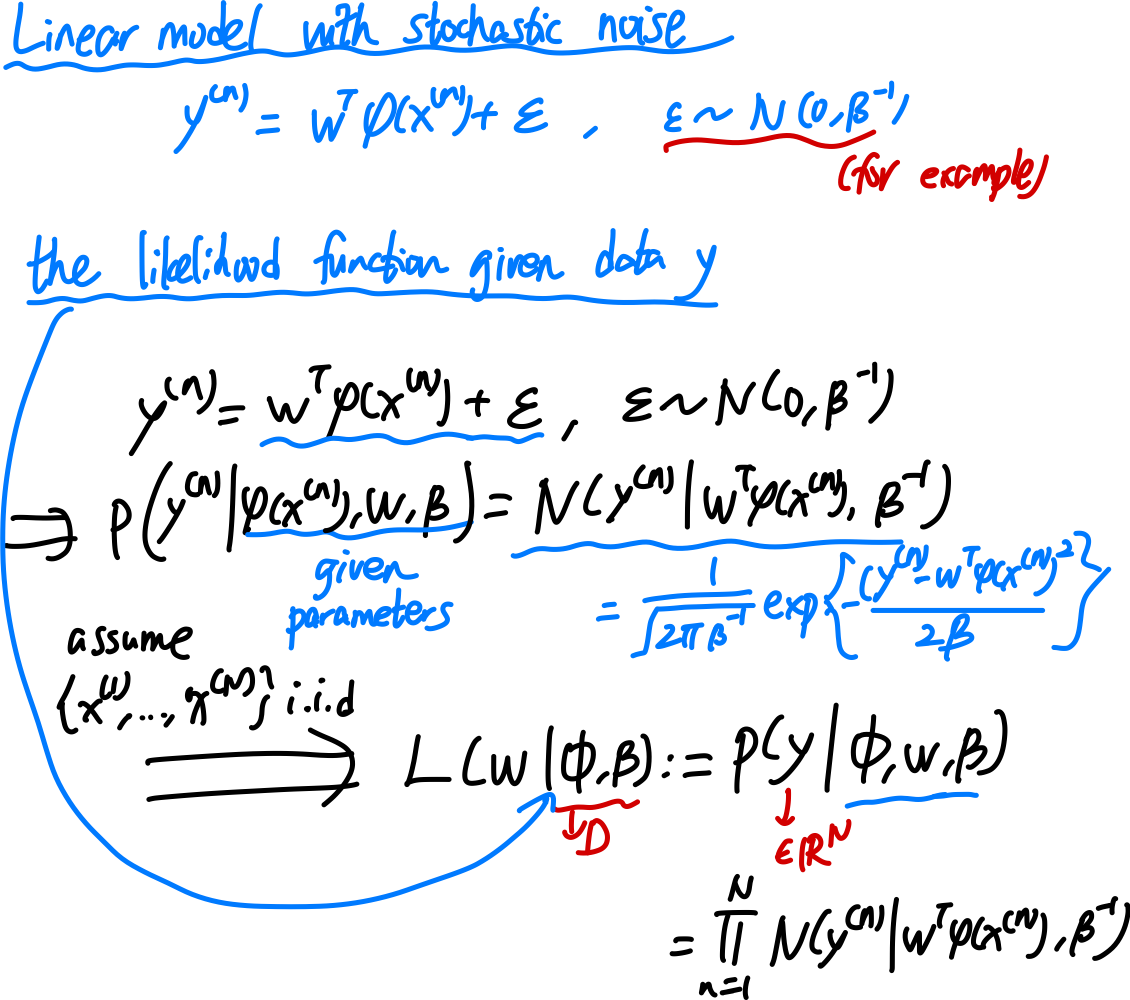 Linear model with stochastic noise
y^(n) = w^T φ(x^(n)) + ε , ε ~ N(0, β^-1)
(for example)
the likelihood function given data y
y^(n) = w^T φ(x^(n)) + ε , ε ~ N(0, β^-1)
⇒ P(y^(n) | φ(x^(n)), w, β) = N(y^(n) | w^T φ(x^(n)), β^-1)
given
parameters
= 1/√(2πβ^-1) exp{-(y^(n) - w^T φ(x^(n))^2 / 2β}
assume
{x^(1), ..., x^(N)} i.i.d
⇒ L(w | Φ, β) := P(y | Φ, w, β)
↓ D
↓ ∈ ℝ^N
= ∏_{n=1}^{N} N(y^(n) | w^T φ(x^(n)), β^-1)